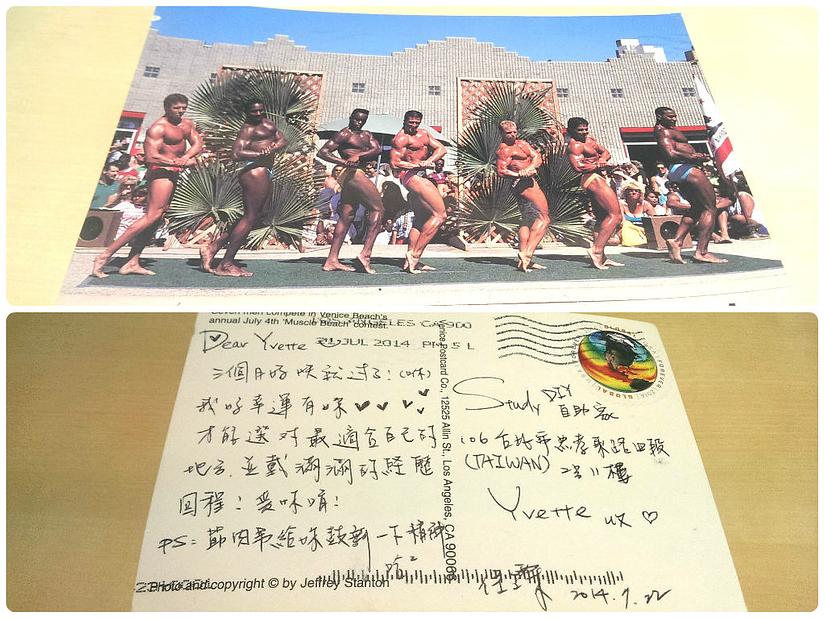 Seven men compete in Venice Beach's
annual July 4th 'Muscle Beach' contest.
LOS ANGELES CA 900
21 JUL 2014 PM 5 L
Dear Yvette
三個月好快就過了!
我好幸運有妳
才能選對最適合自己的
地方,並載滿滿的經歷
回程!愛妳唷!
PS: 節肉秀給妳鼓動一下精神
Photo and copyright © by Jeffrey Stanton
Venice Postcard Co., 12525 Allin St., Los Angeles, CA 90066
GLOBAL
FOREVER
Study DIY
自助家
106 台北市忠孝東路四段
(TAIWAN)
Yvette